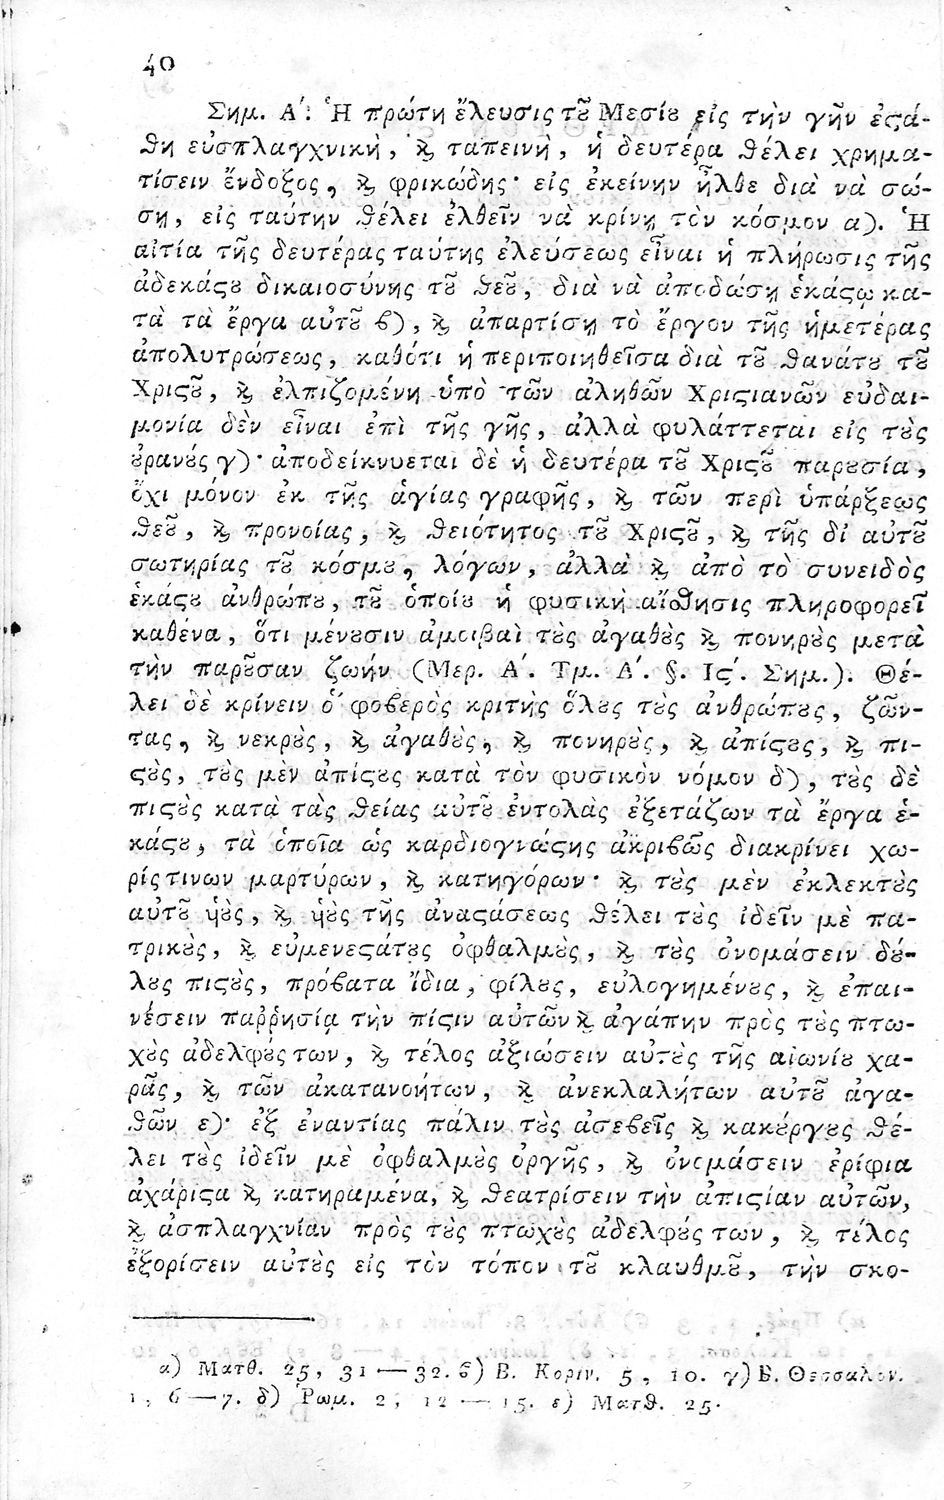 40
Σημ. Α΄: Ἡ πρώτη ἔλευσις τȣ͂ Μεσίȣ εἰς τὴν γῆν ἐϛά-
θη εὐσπλαγχνικὴ, ϗ ταπεινὴ, ἡ δευτέρα θέλει χρημα-
τίσειν ἔνδοξος, ϗ φρικώδης· εἰς ἐκείνην ἦλθε διὰ νὰ σώ-
σῃ, εἰς ταύτην θέλει ἐλθεῖν νὰ κρίνῃ τὸν κόσμον α). Ἡ
αἰτία τῆς δευτέρας ταύτης ἐλεύσεως εἶναι ἡ πλήρωσις τῆς
ἀδεκάϛȣ δικαιοσύνης τȣ͂ Θεȣ͂, διὰ νὰ ἀποδώσῃ ἑκάϛῳ κα-
τὰ τὰ ἔργα αὐτȣ͂ β), ϗ ἀπαρτίσῃ τὸ ἔργον τῆς ἡμετέρας
ἀπολυτρώσεως, καθότι ἡ περιποιηθεῖσα διὰ τȣ͂ θανάτȣ τȣ͂
Χριϛȣ͂, ϗ ἐλπιζομένη ὑπὸ τῶν ἀληθῶν Χριϛιανῶν εὐδαι-
μονία δὲν εἶναι ἐπὶ τῆς γῆς, ἀλλὰ φυλάττεται εἰς τȣ̀ς
ȣ̓ρανȣ́ς γ)· ἀποδείκνυεται δὲ ἡ δευτέρα τȣ͂ Χριϛȣ͂ παρȣσία,
ὄχι μόνον ἐκ τῆς ἁγίας γραφῆς, ϗ τῶν περὶ ὑπάρξεως
Θεȣ͂, ϗ προνοίας, ϗ θειότητος τȣ͂ Χριϛȣ͂, ϗ τῆς δι᾽ αὐτȣ͂
σωτηρίας τȣ͂ κόσμȣ, λόγων, ἀλλὰ ϗ ἀπὸ τὸ συνειδὸς
ἑκάϛȣ ἀνθρώπȣ, τȣ͂ ὁποίȣ ἡ φυσικὴ αἴσθησις πληροφορεῖ
καθένα, ὅτι μένȣσιν ἀμοιβαὶ τȣ̀ς ἀγαθȣ̀ς ϗ πονηρȣ̀ς μετὰ
τὴν παρȣ͂σαν ζωήν (Μερ. Α΄. Τμ. Α΄. §. Ιϛ΄. Σημ.). Θέ-
λει δὲ κρίνειν ὁ φοβερὸς κριτὴς ὅλȣς τȣ̀ς ἀνθρώπȣς, ζῶν-
τας, ϗ νεκρȣ̀ς, ϗ ἀγαθȣ̀ς, ϗ πονηρȣ̀ς, ϗ ἀπίϛȣς, ϗ πι-
ϛȣ̀ς, τȣ̀ς μὲν ἀπίϛȣς κατὰ τὸν φυσικὸν νόμον δ), τȣ̀ς δὲ
πιϛȣ̀ς κατὰ τὰς θείας αὐτȣ͂ ἐντολὰς ἐξετάζων τὰ ἔργα ἑ-
κάϛȣ, τὰ ὁποῖα ὡς καρδιογνώϛης ἀκριβῶς διακρίνει χω-
ρίς τινων μαρτύρων, ϗ κατηγόρων· ϗ τȣ̀ς μὲν ἐκλεκτȣ̀ς
αὐτȣ͂ ὑιȣ̀ς, ϗ ὑιȣ̀ς τῆς ἀναϛάσεως θέλει τȣ̀ς ἰδεῖν μὲ πα-
τρικȣ̀ς, ϗ εὐμενεϛάτȣς ὀφθαλμȣ̀ς, ϗ τȣ̀ς ὀνομάσειν δȣ́-
λȣς πιϛȣ̀ς, πρόβατα ἴδια, φίλȣς, εὐλογημένȣς, ϗ ἐπαι-
νέσειν παῤῥησίᾳ τὴν πίϛιν αὐτῶν ϗ ἀγάπην πρὸς τȣ̀ς πτω-
χȣ̀ς ἀδελφȣ́ς των, ϗ τέλος ἀξιώσειν αὐτȣ̀ς τῆς αἰωνίȣ χα-
ρᾶς, ϗ τῶν ἀκατανοήτων, ϗ ἀνεκλαλήτων αὐτȣ͂ ἀγα-
θῶν ε)· ἐξ ἐναντίας πάλιν τȣ̀ς ἀσεβεῖς ϗ κακȣ́ργȣς θέ-
λει τȣ̀ς ἰδεῖν μὲ ὀφθαλμȣ̀ς ὀργῆς, ϗ ὀνομάσειν ἐρίφια
ἀχάριϛα ϗ κατηραμένα, ϗ θεατρίσειν τὴν ἀπιϛίαν αὐτῶν,
ϗ ἀσπλαγχνίαν πρὸς τȣ̀ς πτωχȣ̀ς ἀδελφȣ́ς των, ϗ τέλος
ἐξορίσειν αὐτȣ̀ς εἰς τὸν τόπον τȣ͂ κλαυθμȣ͂, τὴν σκο-
α) Ματθ. 25, 31 — 32. β) Β. Κοριν. 5, 10. γ) Β. Θεσσαλον.
1, 6 — 7. δ) Ῥωμ. 2, 12 — 15. ε) Ματθ. 25.